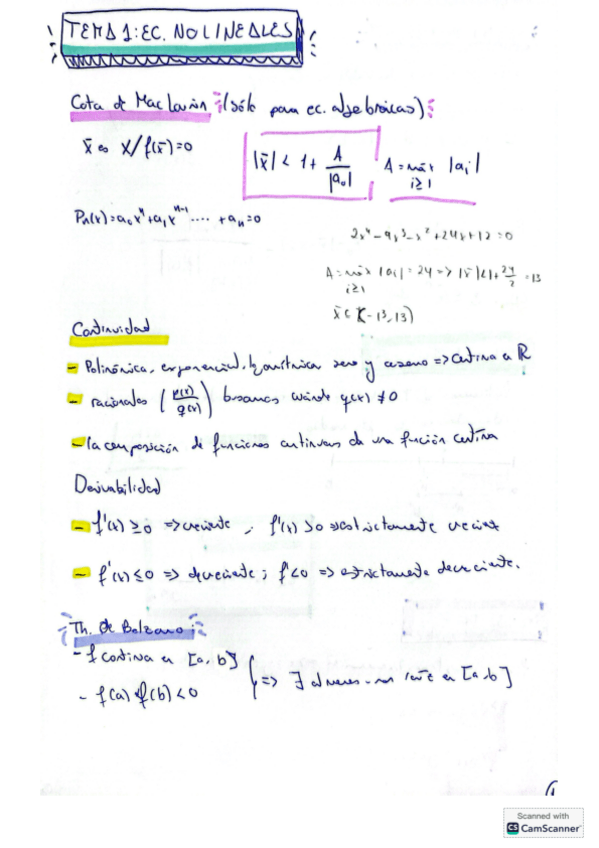 TEMA 1: EC. NO LINEALES
Cota de MacLaurin (sólo para ec. algebraicas)
x̄ es x/f(x̄)=0
|x̄| < 1 + A/|a₀|  A = máx |aᵢ| i≥1
Pₙ(x)=a₀xⁿ+a₁xⁿ⁻¹ .... + aₙ=0
2x⁴-9x³-x²+24x+12=0
A = máx |aᵢ| = 24 => |x̄|<1+24/2 = 13
i≥1
x̄ ∈ (-13,13)
Continuidad
- Polinómica, exponencial, logarítmica seno y coseno => continua en ℝ
- racionales (p(x)/q(x)) buscamos cuándo q(x) ≠ 0
- la composición de funciones continuas da una función continua
Derivabilidad
- f'(x) ≥ 0 => creciente, f'(x) > 0 => estrictamente creciente
- f'(x) ≤ 0 => decreciente; f'<0 => estrictamente decreciente.
Th. de Bolzano:
- f continua en [a,b]
- f(a)·f(b) < 0
=> ∃ al menos una raíz en [a,b]
Scanned with
CS CamScanner